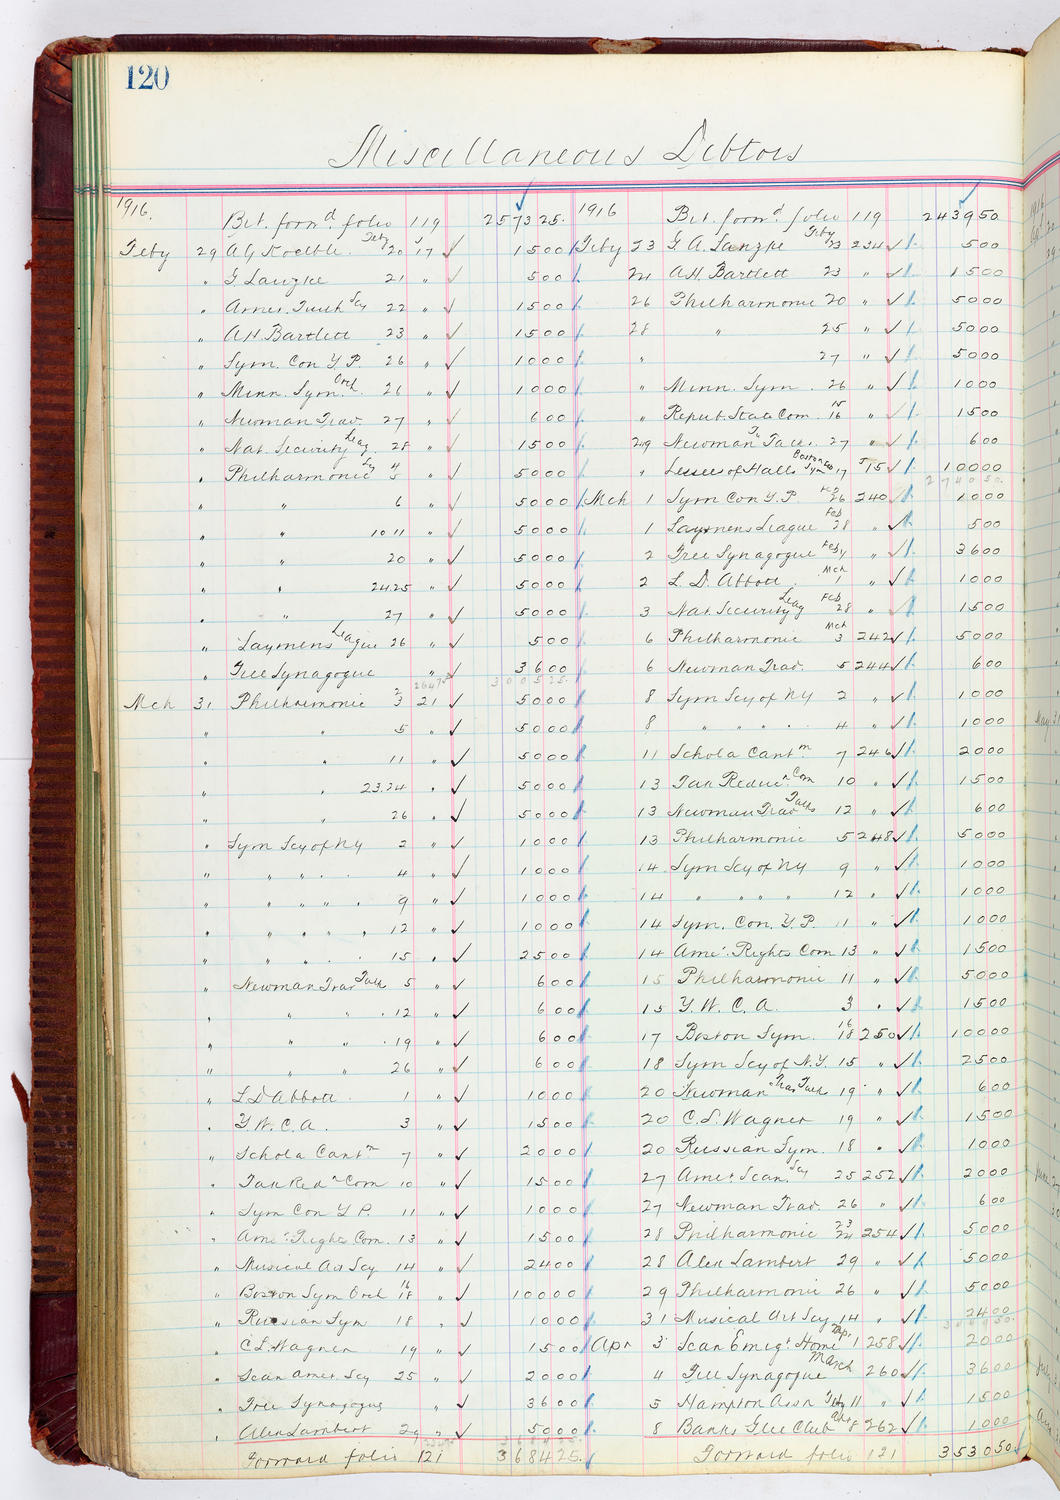 120
Miscellaneous Debtors
1916. Bct. forwd. folio 119 2573 25. 1916 Bct. forwd. folio 119 2439 50
Feby 29 A G Koelble Feby 20 17 ✓ 15 00 Feby 23 G. A. Lanzke Feby 23 234 ✓ 5 00
" G Lanzke 21 " ✓ 5 00 24 A.H. Bartlett 23 " ✓ 15 00
" Amer. Scy 22 " ✓ 15 00 26 Philharmonic 20 " ✓ 50 00
" A H Bartlett 23 " ✓ 15 00 28 " 25 " ✓ 50 00
" Sym. Con Y. P. 26 " ✓ 10 00 " 27 " ✓ 50 00
" Minn. Sym. Orch 26 " ✓ 10 00 " Minn. Sym. 26 " ✓ 10 00
" Newman Trav. 27 " ✓ 6 00 " Repub. State Com. 15 16 " ✓ 15 00
" Nat. Security Leag 28 " ✓ 15 00 29 Newman Tr Talks. 27 " ✓ 6 00
" Philharmonic 4 5 " ✓ 50 00 " Lessees of Halls Boston Sym 17 515 ✓ 100 00
2740 50.
" " 6 " ✓ 50 00 Mch 1 Sym Con Y. P. Feb 26 240 ✓ 10 00
" " 10 11 " ✓ 50 00 1 Laymens League Feb 28 " ✓ 5 00
" " 20 " ✓ 50 00 2 Free Synagogue Feby " ✓ 36 00
" " 24.25 " ✓ 50 00 2 L. D. Abbott. Mch 1 " ✓ 10 00
" " 27 " ✓ 50 00 3 Nat. Security Leag Feb 28 " ✓ 15 00
" Laymens League 26 " ✓ 5 00 6 Philharmonic Mch 3 242 ✓ 50 00
" Free Synagogue " ✓ 36 00 6 Newman Trav. 5 244 ✓ 6 00
2647 5 3005 25.
Mch 31 Philharmonic 2 3 21 ✓ 50 00 8 Sym Scy of NY 2 " ✓ 10 00
" " 5 " ✓ 50 00 8 " " " " 4 " ✓ 10 00
" " 11 " ✓ 50 00 11 Schola Cantm 7 246 ✓ 20 00
" " 23.24 " ✓ 50 00 13 Tax Reducn Com 10 " ✓ 15 00
" " 26 " ✓ 50 00 13 Newman Trav Talks 12 " ✓ 6 00
" Sym Scy of NY 2 " ✓ 10 00 13 Philharmonic 5 248 ✓ 50 00
" " " " " 4 " ✓ 10 00 14. Sym Scy of NY 9 " ✓ 10 00
" " " " " 9 " ✓ 10 00 14 " " " " 12 " ✓ 10 00
" " " " " 12 " ✓ 10 00 14 Sym. Con. Y. P. 11 " ✓ 10 00
" " " " " 15 " ✓ 25 00 14 Ame: Rights Com 13 " ✓ 15 00
" Newman Trav Talk 5 " ✓ 6 00 15 Philharmonic 11 " ✓ 50 00
" " " 12 " ✓ 6 00 15 Y. W. C. A. 3 " ✓ 15 00
" " " 19 " ✓ 6 00 17 Boston Sym. 16 18 250 ✓ 100 00
" " " 26 " ✓ 6 00 18 Sym Scy of N.Y. 15 " ✓ 25 00
" L D Abbott. 1 " ✓ 10 00 20 Newman Trav Talk 19 " ✓ 6 00
" Y. W. C. A. 3 " ✓ 15 00 20 C. L. Wagner 19 " ✓ 15 00
" Schola Cantm 7 " ✓ 20 00 20 Russian Sym. 18 " ✓ 10 00
" Tax Redn Com 10 " ✓ 15 00 27 Amer Scan. Scy 25 252 ✓ 20 00
" Sym Con Y P. 11 " ✓ 10 00 27 Newman Trav. 26 " ✓ 6 00
" Ame: Rights Com. 13 " ✓ 15 00 28 Philharmonic 23 24 254 ✓ 50 00
" Musical Art Scy 14 " ✓ 24 00 28 Alex Lambert 29 " ✓ 50 00
" Boston Sym Orch 16 18 " ✓ 100 00 29 Philharmonic 26 " ✓ 50 00
" Russian Sym 18 " ✓ 10 00 31 Musical Art Scy 14 " ✓ 24 00
" C L Wagner 19 " ✓ 15 00 Apr 3 Scan Emigt Home Apr. 1 258 ✓ 20 00
" Scan Amer. Scy 25 " ✓ 20 00 4 Free Synagogue March 260 ✓ 36 00
" Free Synagogue " ✓ 36 00 5 Hampton Assn Feby 11 " ✓ 15 00
" Alex Lambert 29 " ✓ 50 00 8 Banks Glee Club Apr 8 262 ✓ 10 00
Forward folio 121 3684 25. Forward folio 121 3530 50